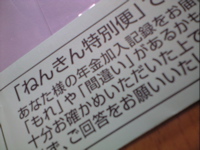 「ねんきん特別便」と
あなた様の年金加入記録をお届
「もれ」や「間違い」があるかも
十分お確かめいただいた上で
ご回答をお願いいたし